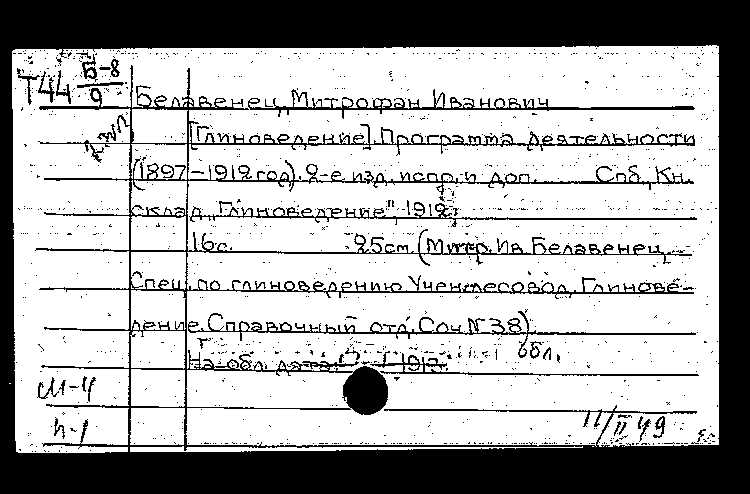 Т44 Б-8
9
Белавенец, Митрофан Иванович
[Глиноведение]. Программа деятельности
(1897-1912 год). 2-е изд. испр. и доп. Спб., Кн.
склад „Глиноведение", 1912.
16 с. 25 см. (Митр. Ив. Белавенец,
Спец. по глиноведению Учен. лесовод. Глинове-
дение. Справочный отд. Соч № 38)
На обл. дата: 1913. обл.
М-4
п-1
11/II 49